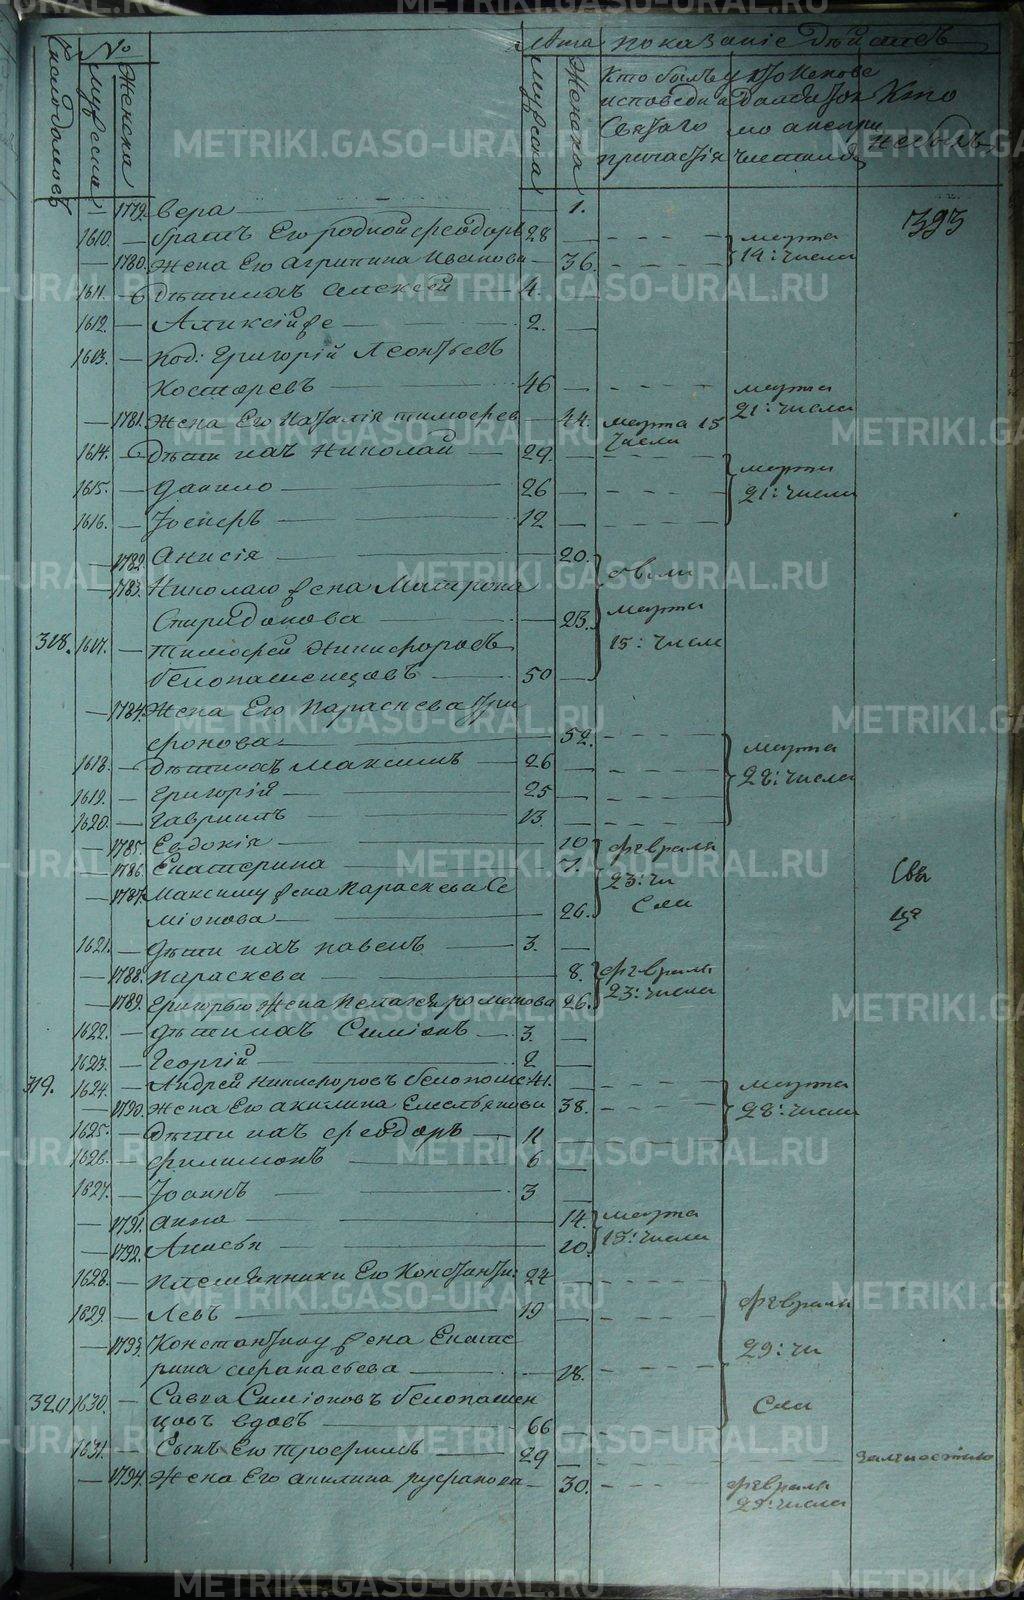 Число домовъ
№
Мужска
Женска
Лѣта
Мужска
Женска
показаніе дѣйствъ
Кто былъ у исповеди и Святаго причастія
Кто не былъ
393
— 1779. Вера — 1.
1610. — братъ Его родной Феодоръ 28
— 1780. Жена Его Агрипина Иванова — 36.
марта 19: числа
1611. — дѣти ихъ Алексей 4.
1612. — 2.
1613. — Григорій Леонтьевъ
Костаревъ — 46
марта 21: числа
— 1781. Жена Его Наталія Тимофеев — 44. марта 15 числа
1614. — дѣти ихъ Николай — 29.
1615. — Данило — 26
1616. — Іосифъ — 12
марта 21: числа
— 1782. Анисія — 20.
— 1783. Николаю жена Матрона
Спиридонова — 23.
были марта 15: числа
318. 1617. — Тимофей Никифоровъ
Белопашенцовъ — 50
— 1784. Жена Его Параскева Три
фонова — 52.
1618. — дѣти ихъ Максимъ — 26
1619. — Григорій — 25
1620. — Гавриилъ — 13.
марта 28: числа
— 1785. Евдокія — 10
— 1786. Екатерина — 7.
— 1787. Максиму жена Параскева Се
міонова — 26.
февраля 23: чи
сла
Свы
ще
1621. — дѣти ихъ Павелъ — 3.
— 1788. Параскева — 8.
— 1789. Григорью жена Пелагея Романова 26.
февраля 23: числа
1622. — дѣти ихъ Симіонъ — 3.
1623. — Георгій — 2
319. 1624. — Андрей Никифоровъ Белопаше 41.
— 1790. Жена Его Акилина Емельянова 38.
марта 28: числа
1625. — дѣти ихъ Феодоръ — 11
1626. — Филимонъ — 6
1627. — Іоаннъ — 3
— 1791. Анна — 14.
— 1792. — 10.
марта 15: числа
1628. — племянники Его Константи: 24
1629. — Левъ — 19
— 1793. Константину жена Екате
рина Афанасьева — 28.
февраля
29: чи
сла
320 1630. — Савва Симіоновъ Белопашен
цовъ вдовъ — 66
1631. — Сынъ Его Трофимъ — 29
— 1794. Жена Его Акилина — 30.
февраля
29: числа
METRIKI.GASO-URAL.RU